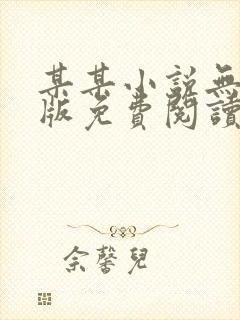 某某小說無
版免費閱讀
余馨兒